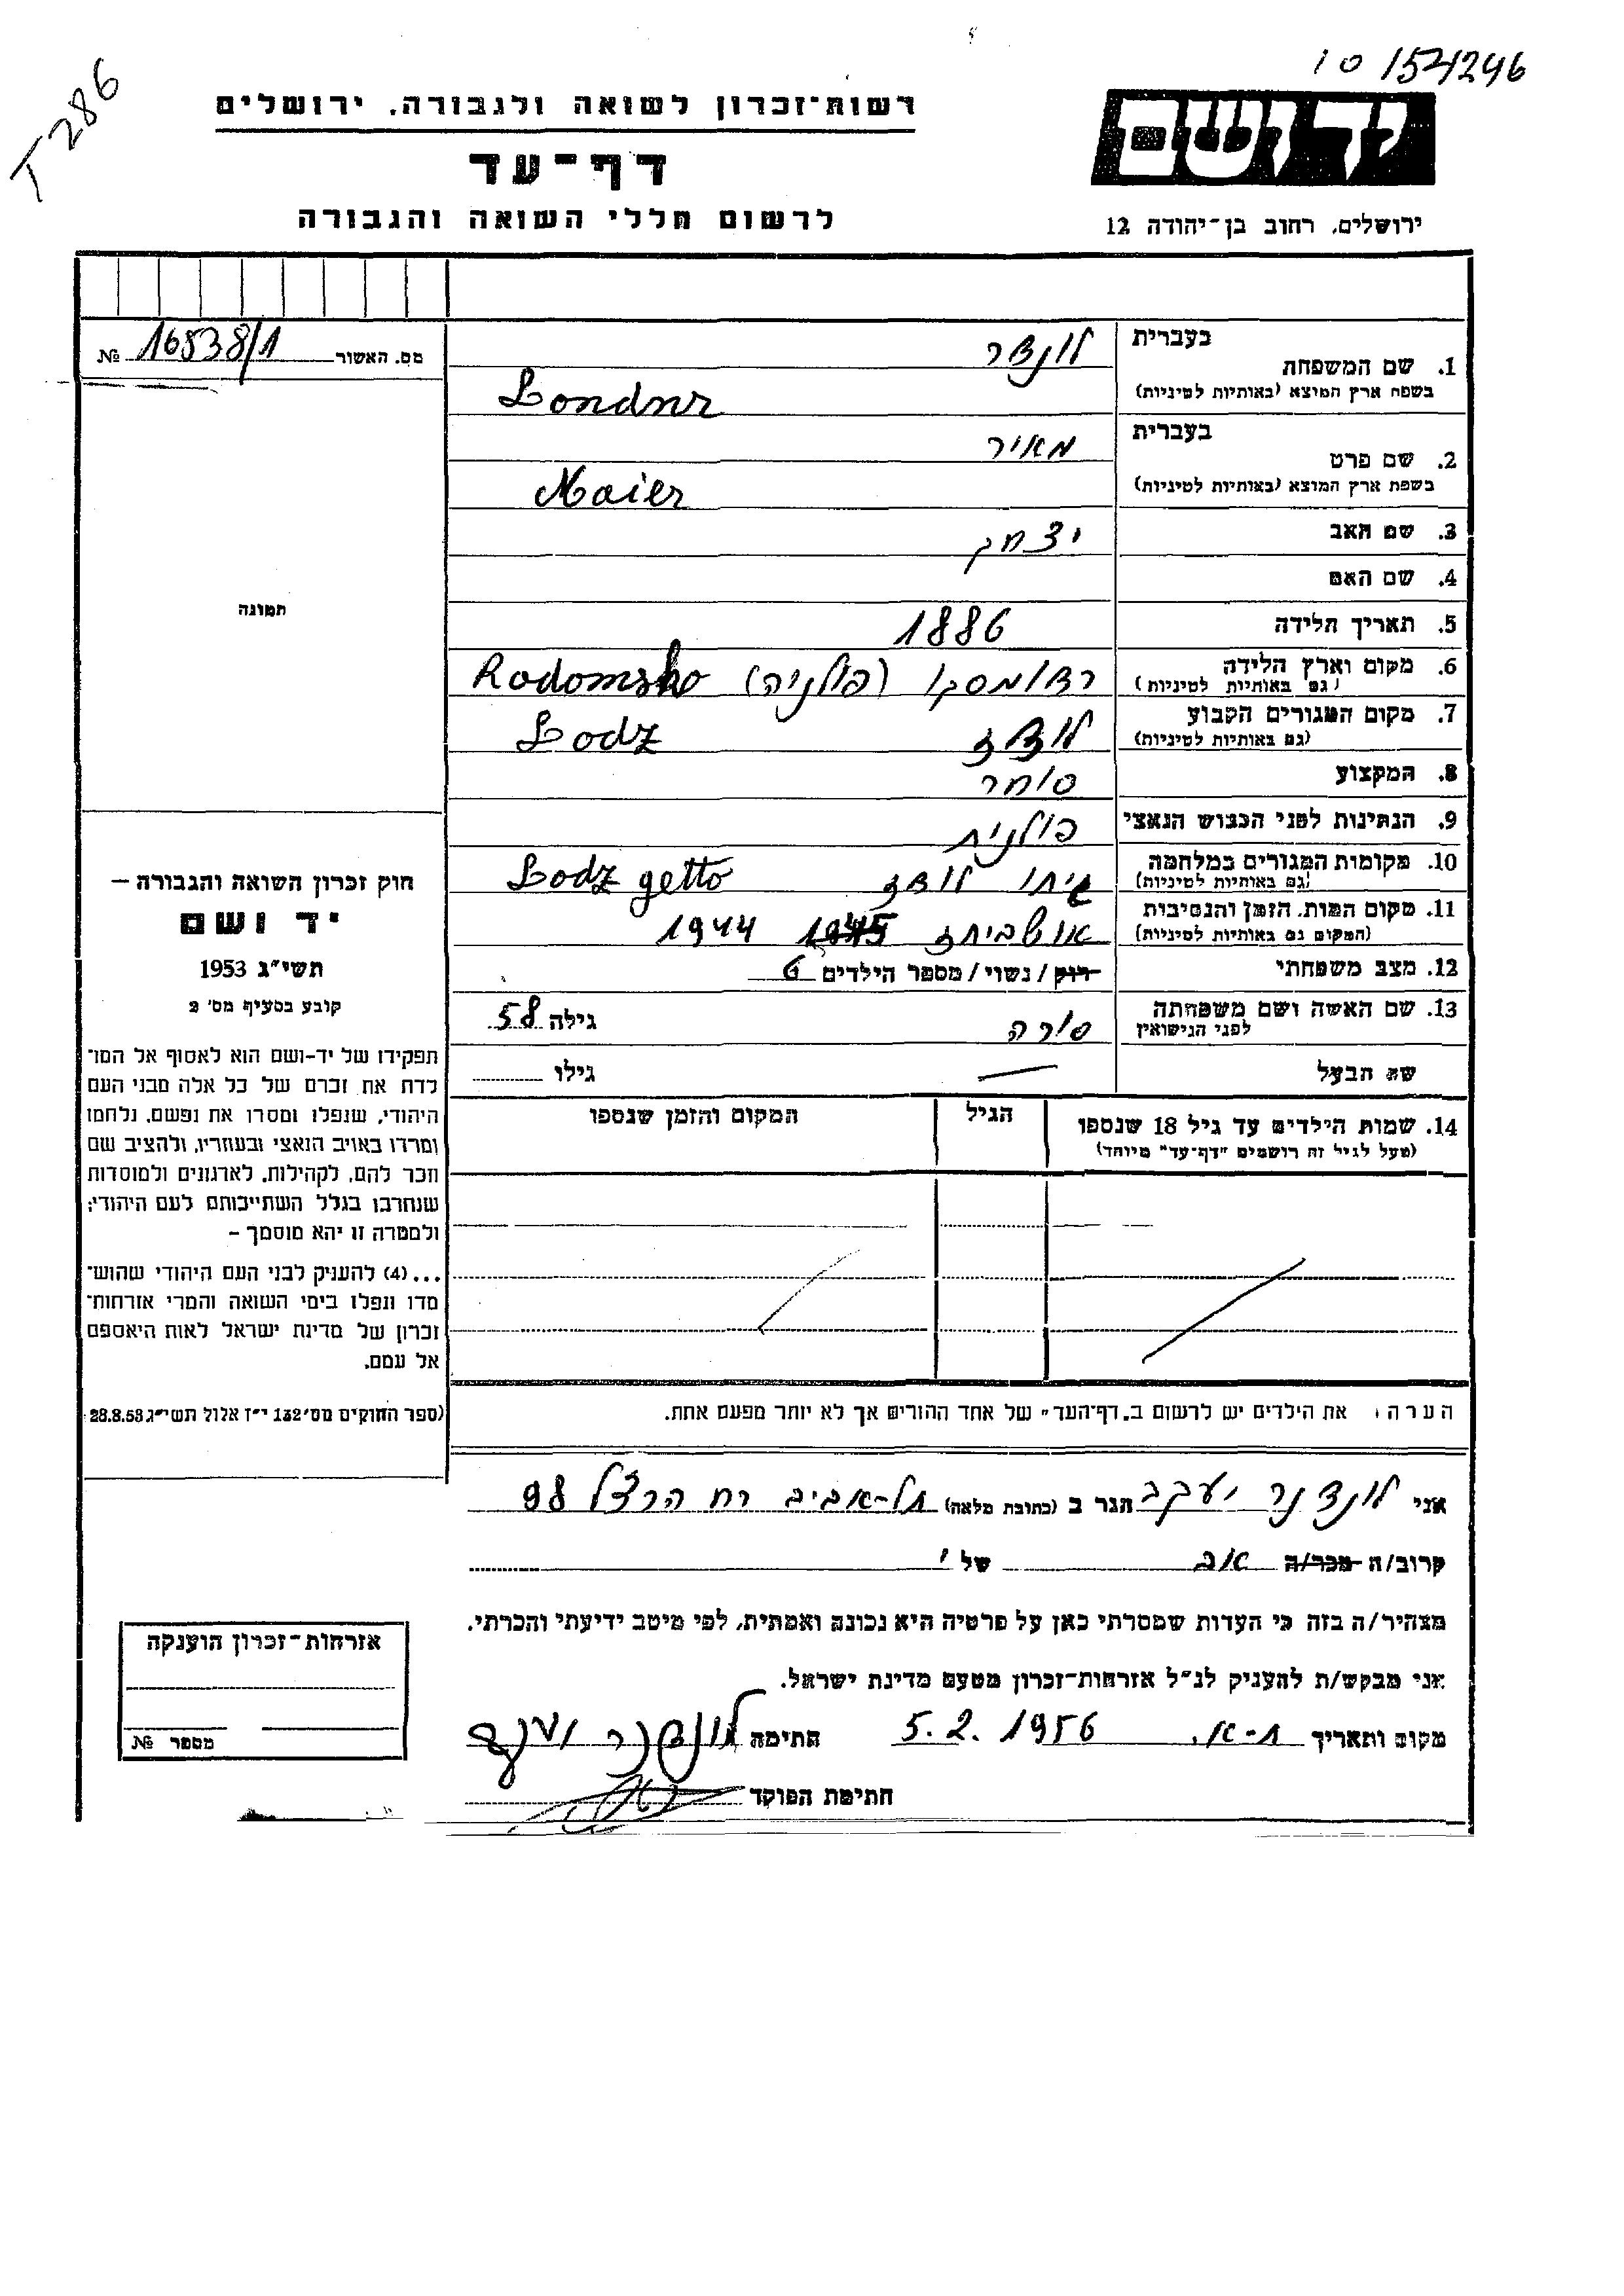 T 286
10 157246
רשות-זכרון לשואה ולגבורה. ירושלים
יד ושם
דף-עד
לרשום חללי השואה והגבורה
ירושלים, רחוב בן-יהודה 12
מס. האשור 16538/1 №
בעברית לונדנר
1. שם המשפחה
בשפת ארץ המוצא (באותיות לטיניות) Londnr
בעברית מאיר
2. שם פרט
בשפת ארץ המוצא (באותיות לטיניות) Maier
3. שם האב יצחק
4. שם האם
5. תאריך הלידה 1886
6. מקום וארץ הלידה רדומסקו (פולניה) Radomsko
(גם באותיות לטיניות)
7. מקום המגורים הקבוע לודז Lodz
(גם באותיות לטיניות)
8. המקצוע סוחר
9. הנתינות לפני הכבוש הנאצי פולנית
10. מקומות המגורים במלחמה גיתו לודז Lodz getto
(גם באותיות לטיניות)
11. מקום המות, הזמן והנסיבות אושביתז 1945 1944
(המקום גם באותיות לטיניות)
12. מצב משפחתי רוק / נשוי / מספר הילדים 6
13. שם האשה ושם משפחתה שרה גילה 58
לפני הנישואין
שם הבעל — גילו
14. שמות הילדים עד גיל 18 שנספו הגיל המקום והזמן שנספו
(מעל לגיל זה רושמים "דף-עד" מיוחד)
הערה: את הילדים יש לרשום ב"דף-העד" של אחד ההורים אך לא יותר מפעם אחת.
תמונה
חוק זכרון השואה והגבורה —
יד ושם
תשי"ג 1953
קובע בסעיף מס' 2
תפקידו של יד-ושם הוא לאסוף אל המו-
לדת את זכרם של כל אלה מבני העם
היהודי, שנפלו ומסרו את נפשם, נלחמו
ומרדו באויב הנאצי ובעוזריו, ולהציב שם
וזכר להם, לקהילות, לארגונים ולמוסדות
שנחרבו בגלל השתייכותם לעם היהודי;
ולמטרה זו יהא מוסמך –
...(4) להעניק לבני העם היהודי שהוש-
מדו ונפלו בימי השואה והמרי אזרחות-
זכרון של מדינת ישראל לאות היאספם
אל עמם.
(ספר החוקים מס' 132 י"ז אלול תשי"ג 28.8.53
אני לונדנר יעקב הגר ב (כתובת מלאה) תל-אביב רח הרצל 98
קרוב/ה מכר/ה אב של
מצהיר/ה בזה כי העדות שמסרתי כאן על פרטיה היא נכונה ואמתית, לפי מיטב ידיעתי והכרתי.
אני מבקש/ת להעניק לנ"ל אזרחות-זכרון מטעם מדינת ישראל.
מקום ותאריך ת-א. 5.2.1956 חתימה לונדנר יעקב
חתימת הפוקד
אזרחות-זכרון הוענקה
מספר №